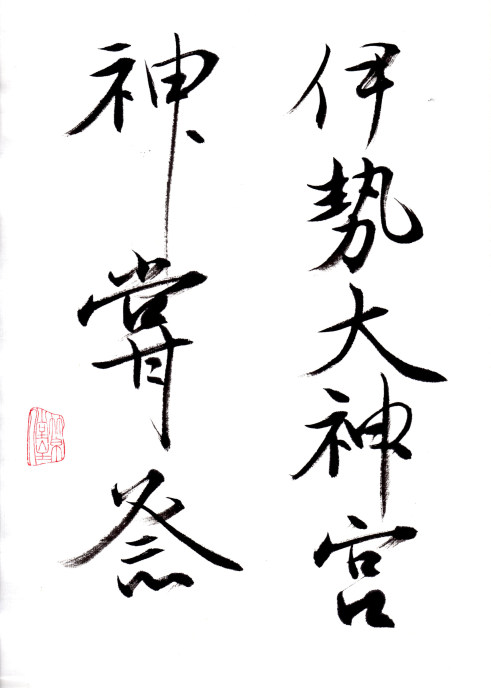 伊勢大神宮
神嘗祭